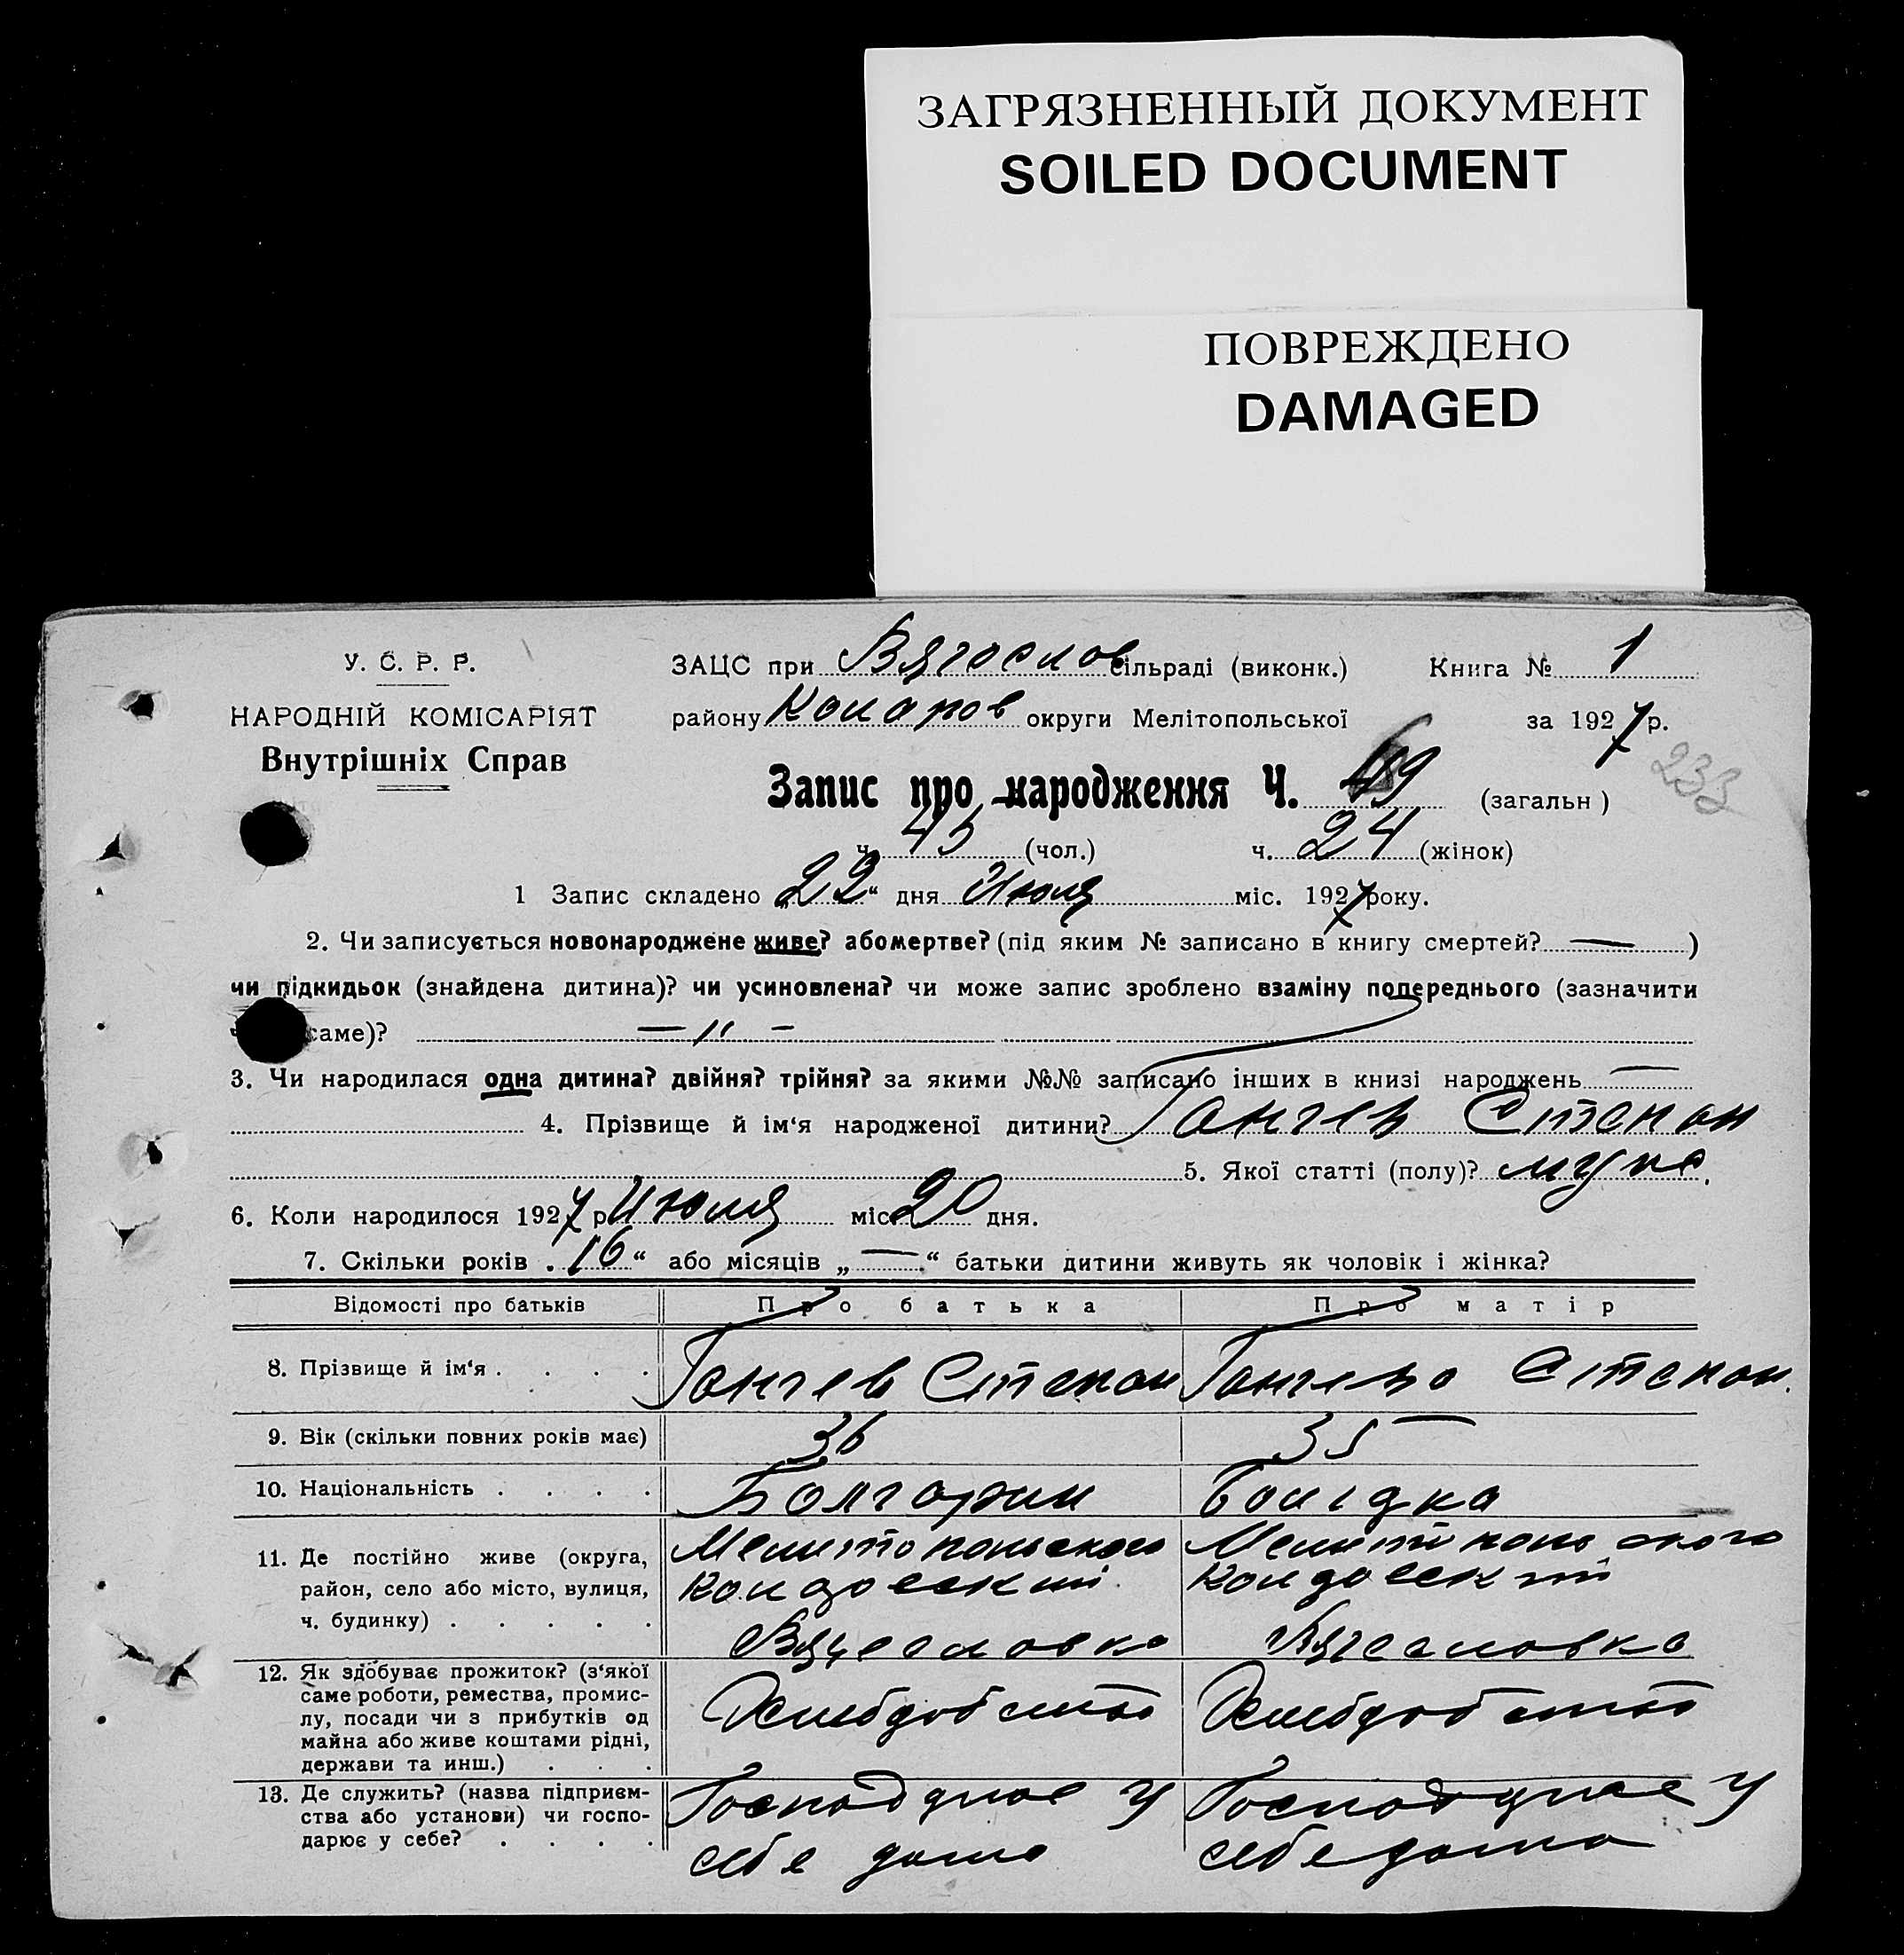 ЗАГРЯЗНЕННЫЙ ДОКУМЕНТ
SOILED DOCUMENT
ПОВРЕЖДЕНО
DAMAGED
У. С. Р. Р.
НАРОДНІЙ КОМІСАРІЯТ
Внутрішніх Справ
ЗАЦС при Вячеслов сільраді (виконк.) Книга № 1
району Коларов округи Мелітопольської за 1927 р.
233
Запис про народження Ч. 69 (загальн)
ч. 45 (чол.) ч. 24 (жінок)
1 Запис складено „22“ дня Июля міс. 1927 року.
2. Чи записується новонароджене живе? або мертве? (під яким № записано в книгу смертей? — )
чи підкидьок (знайдена дитина)? чи усиновлена? чи може запис зроблено взаміну попереднього (зазначити
саме)? — „ —
3. Чи народилася одна дитина? двійня? трійня? за якими №№ записано інших в книзі народжень —
4. Прізвище й ім‘я народженої дитини? Гангев Степан
5. Якої статті (полу)? муж.
6. Коли народилося 1927 р. Июля міс. 20 дня.
7. Скільки років „16“ або місяців „—“ батьки дитини живуть як чоловік і жінка?
Відомості про батьків Про батька Про матір
8. Прізвище й ім‘я . . . . Гангев Степан Гангева Степан.
9. Вік (скільки повних років має) 36 35
10. Національність . . . . Болгарин
11. Де постійно живе (округа, Мелитопольского Мелитопольского
район, село або місто, вулиця,
ч. будинку) . . . . . Вячесловка Вячесловка
12. Як здобуває прожиток? (з‘якої
саме роботи, ремества, промис-
лу, посади чи з прибутків од Хлебдобство Хлебдобство
майна або живе коштами рідні,
держави та инш.) . . .
13. Де служить? (назва підприєм- Господарює у Господарює у
ства або установи) чи госпо-
дарює у себе? . . . . себе дома себе дома